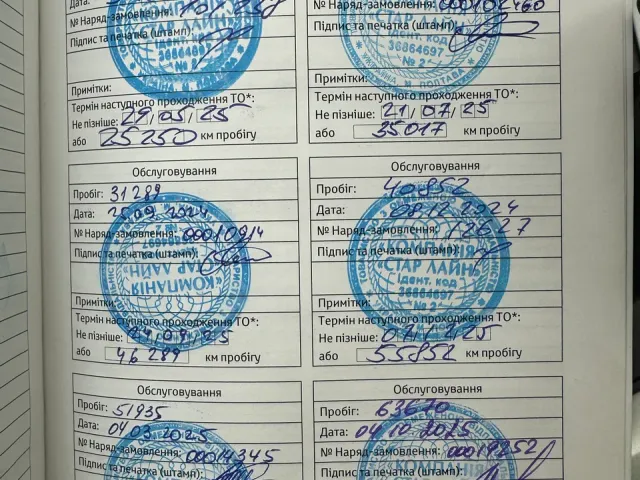 Дата:
№ Наряд-замовлення:
Підпис та печатка (штамп):
СТАР ЛАЙН
Ідент. код
36864697
№ 2
Примітки:
Термін наступного проходження ТО*:
Не пізніше: 29/05/25
або 25250 км пробігу
№ Наряд-замовлення: 000102460
Підпис та печатка (штамп):
СТАР ЛАЙН
Ідент. код
36864697
№ 2
УКРАЇНА М ПОЛТАВА
Примітки:
Термін наступного проходження ТО*:
Не пізніше: 21/07/25
або 35017 км пробігу
Обслуговування
Пробіг: 31289
Дата: 25.09.2024
№ Наряд-замовлення:
Підпис та печатка (штамп):
КОМПАНІЯ
СТАР ЛАЙН
Примітки:
Термін наступного проходження ТО*:
Не пізніше:
або 46289 км пробігу
Обслуговування
Пробіг: 40852
Дата: 08.12.2024
№ Наряд-замовлення: 12627
Підпис та печатка (штамп):
"СТАР ЛАЙН"
Ідент. код
36864697
№ 2
Примітки:
Термін наступного проходження ТО*:
Не пізніше: 07/12/25
або 55852 км пробігу
Обслуговування
Пробіг: 51935
Дата: 04.03.2025
№ Наряд-замовлення: 00014345
Підпис та печатка (штамп):
Обслуговування
Пробіг: 63670
Дата: 04.10.2025
№ Наряд-замовлення: 00019252
Підпис та печатка (штамп):
КОМПАНІЯ